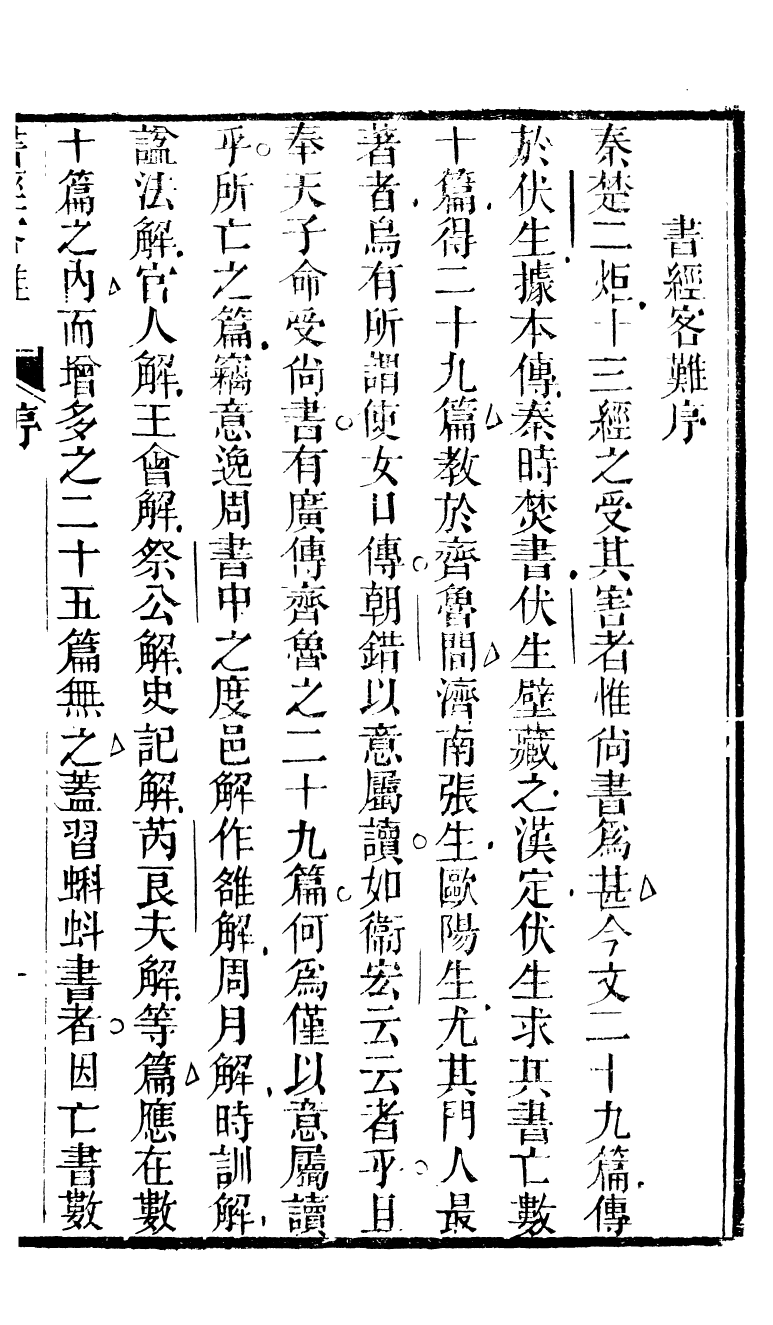 書經客難序
秦楚二炬十三經之受其害者惟尚書爲甚今文二十九篇傳
於伏生據本傳秦時焚書伏生壁藏之漢定伏生求其書亡數
十篇得二十九篇教於齊魯間濟南張生歐陽生尤其門人最
著者烏有所謂使女口傳朝錯以意屬讀如衞宏云云者乎且
奉天子命受尚書有廣傳齊魯之二十九篇何爲僅以意屬讀
乎所亡之篇竊意逸周書中之度邑解作雒解周月解時訓解
諡法解官人解王會解祭公解史記解芮良夫解等篇應在數
十篇之內而增多之二十五篇無之蓋習蝌蚪書者因亡書數
書經客難
序